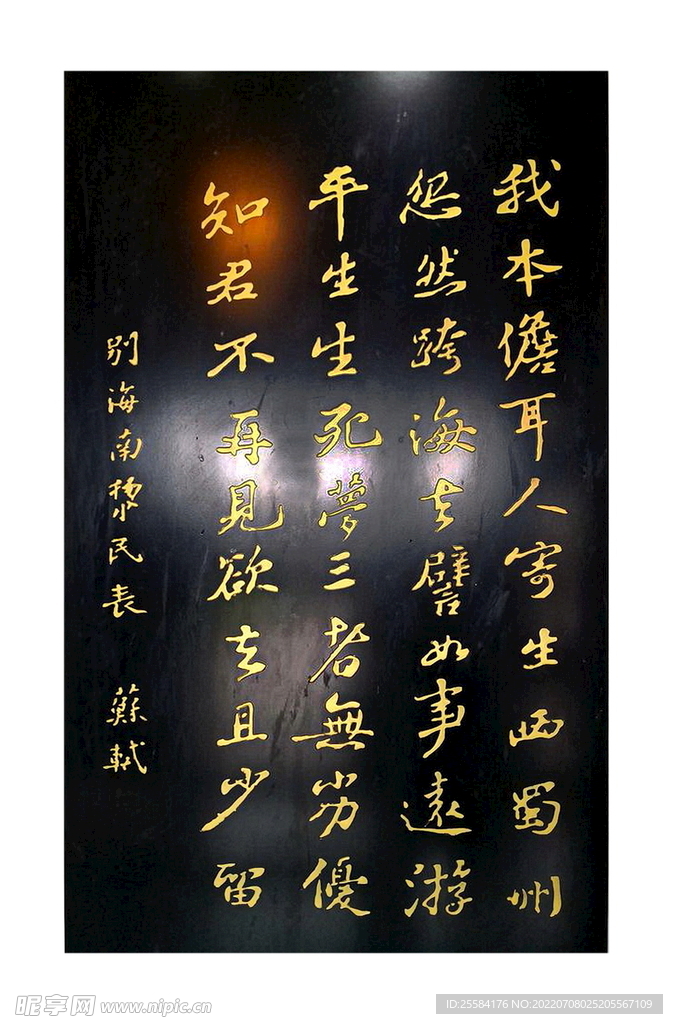 我本儋耳人寄生西蜀州
忽然跨海去譬如事遠游
平生生死夢三者無劣優
知君不再見欲去且少留
別海南黎民表 蘇軾
昵享网 www.nipic.cn
ID:25584176 NO:20220708025205567109